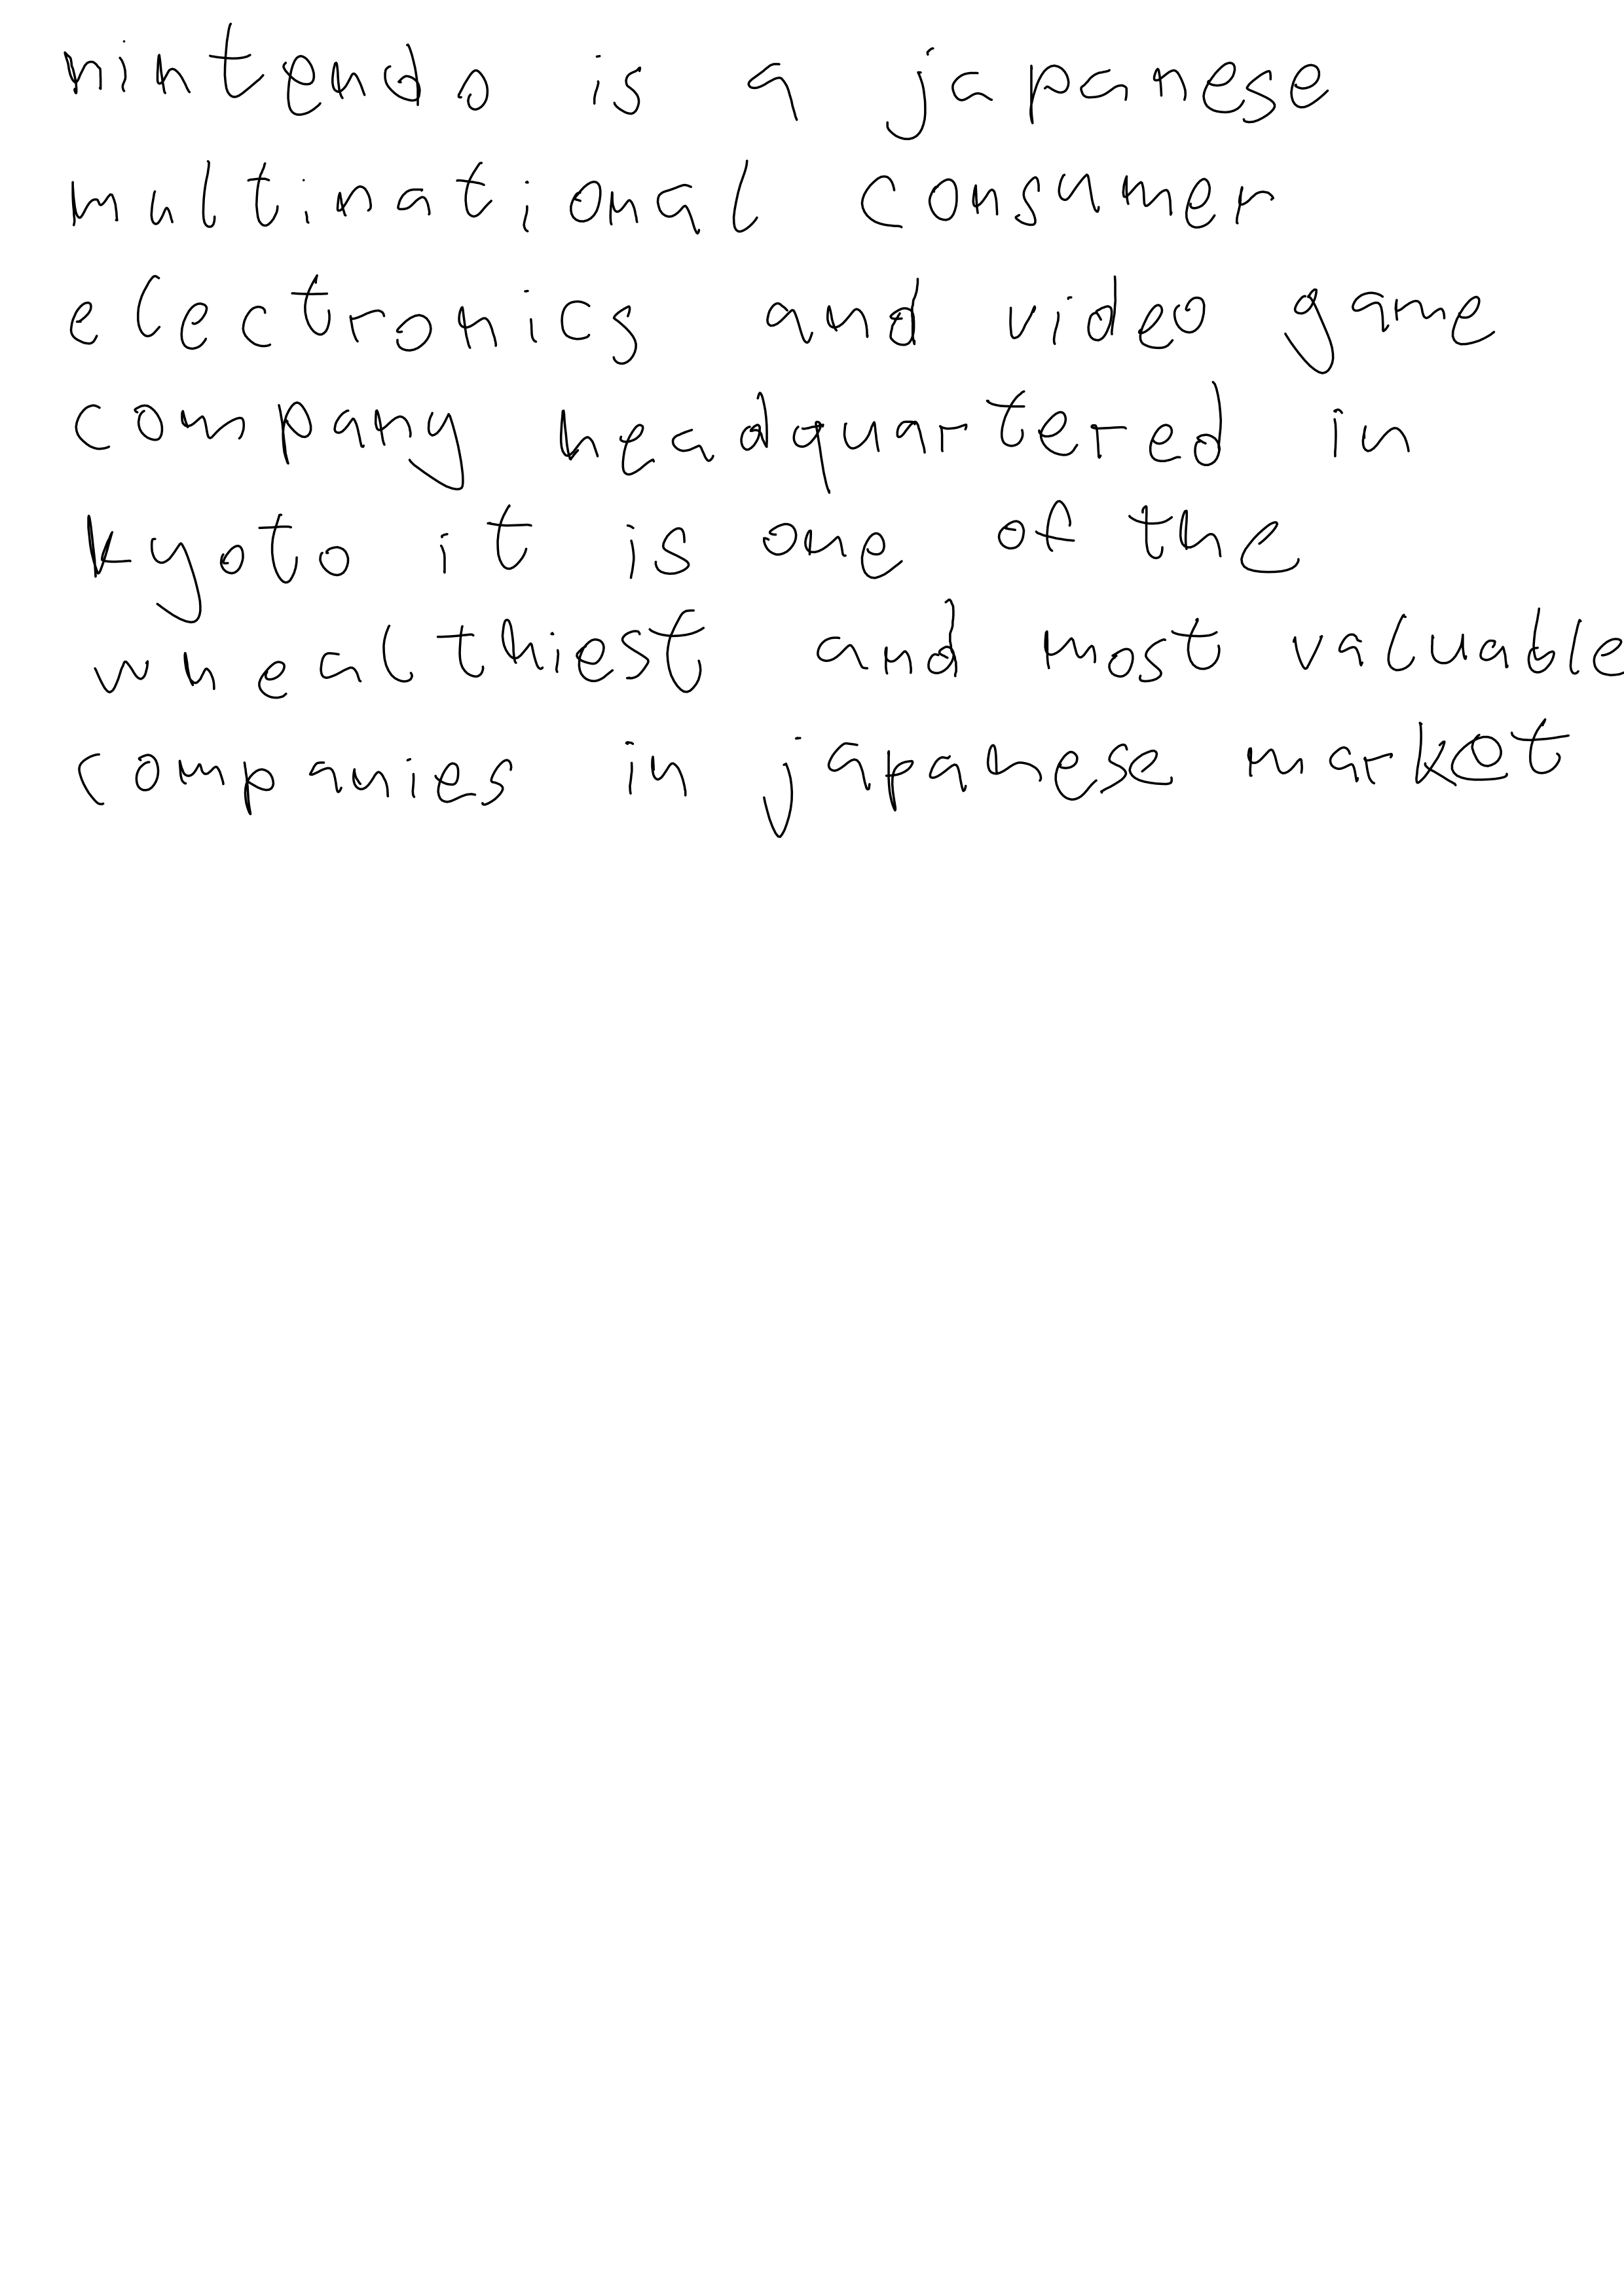 nintendo is a japanese
multinational consumer
electronics and video game
company headquartered in
kyoto it is one of the
whealthiest and most valuable
companies in japanese market